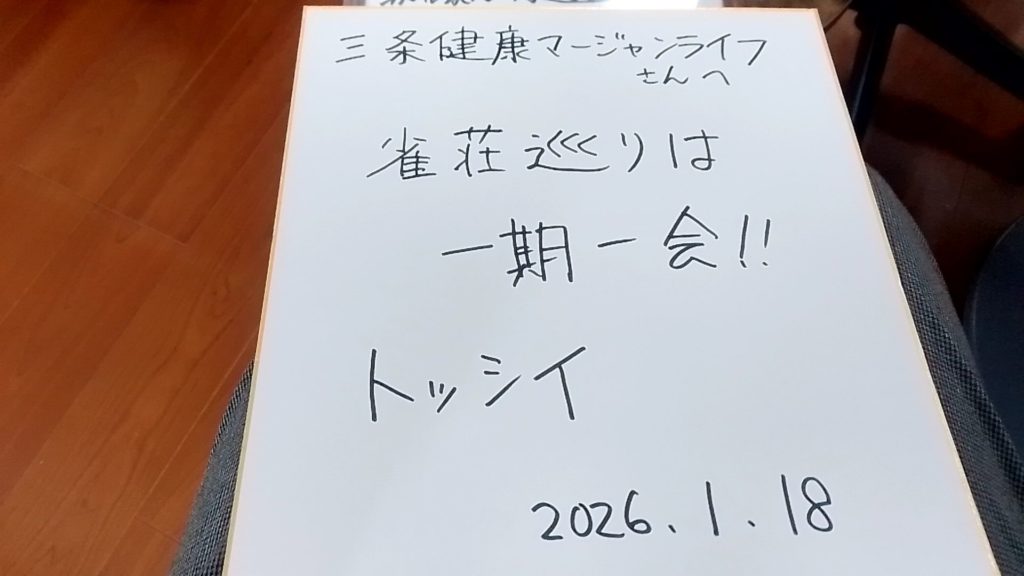 三条健康マージャンライフ
さんへ
雀荘巡りは
一期一会!!
トッシイ
2026.1.18